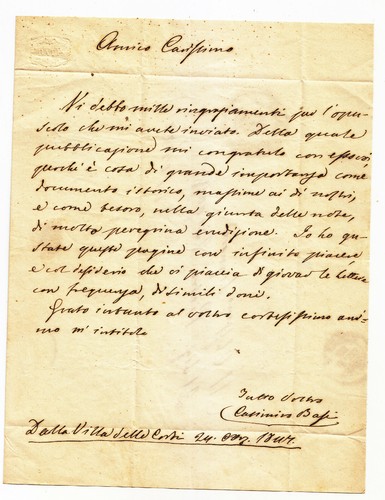 Amico Carissimo
Vi debbo mille ringraziamenti per l'opu-
scolo che mi avete inviato. Della quale
pubblicazione mi congratulo con esso voi,
perché è cosa di grande importanza come
documento istorico, massime ai dì nostri,
e come tesoro, nella giunta delle note,
di molta peregrina erudizione. Io ho gu-
state queste pagine con infinito piacere,
e col desiderio che vi piaccia di giovar le lettere
con frequenza, di simili doni.
Grato intanto al vostro cortesissimo ani-
mo m'intitolo
Tutto Vostro
Casimiro Basi
Dalla Villa delle Corti 24. 1847.